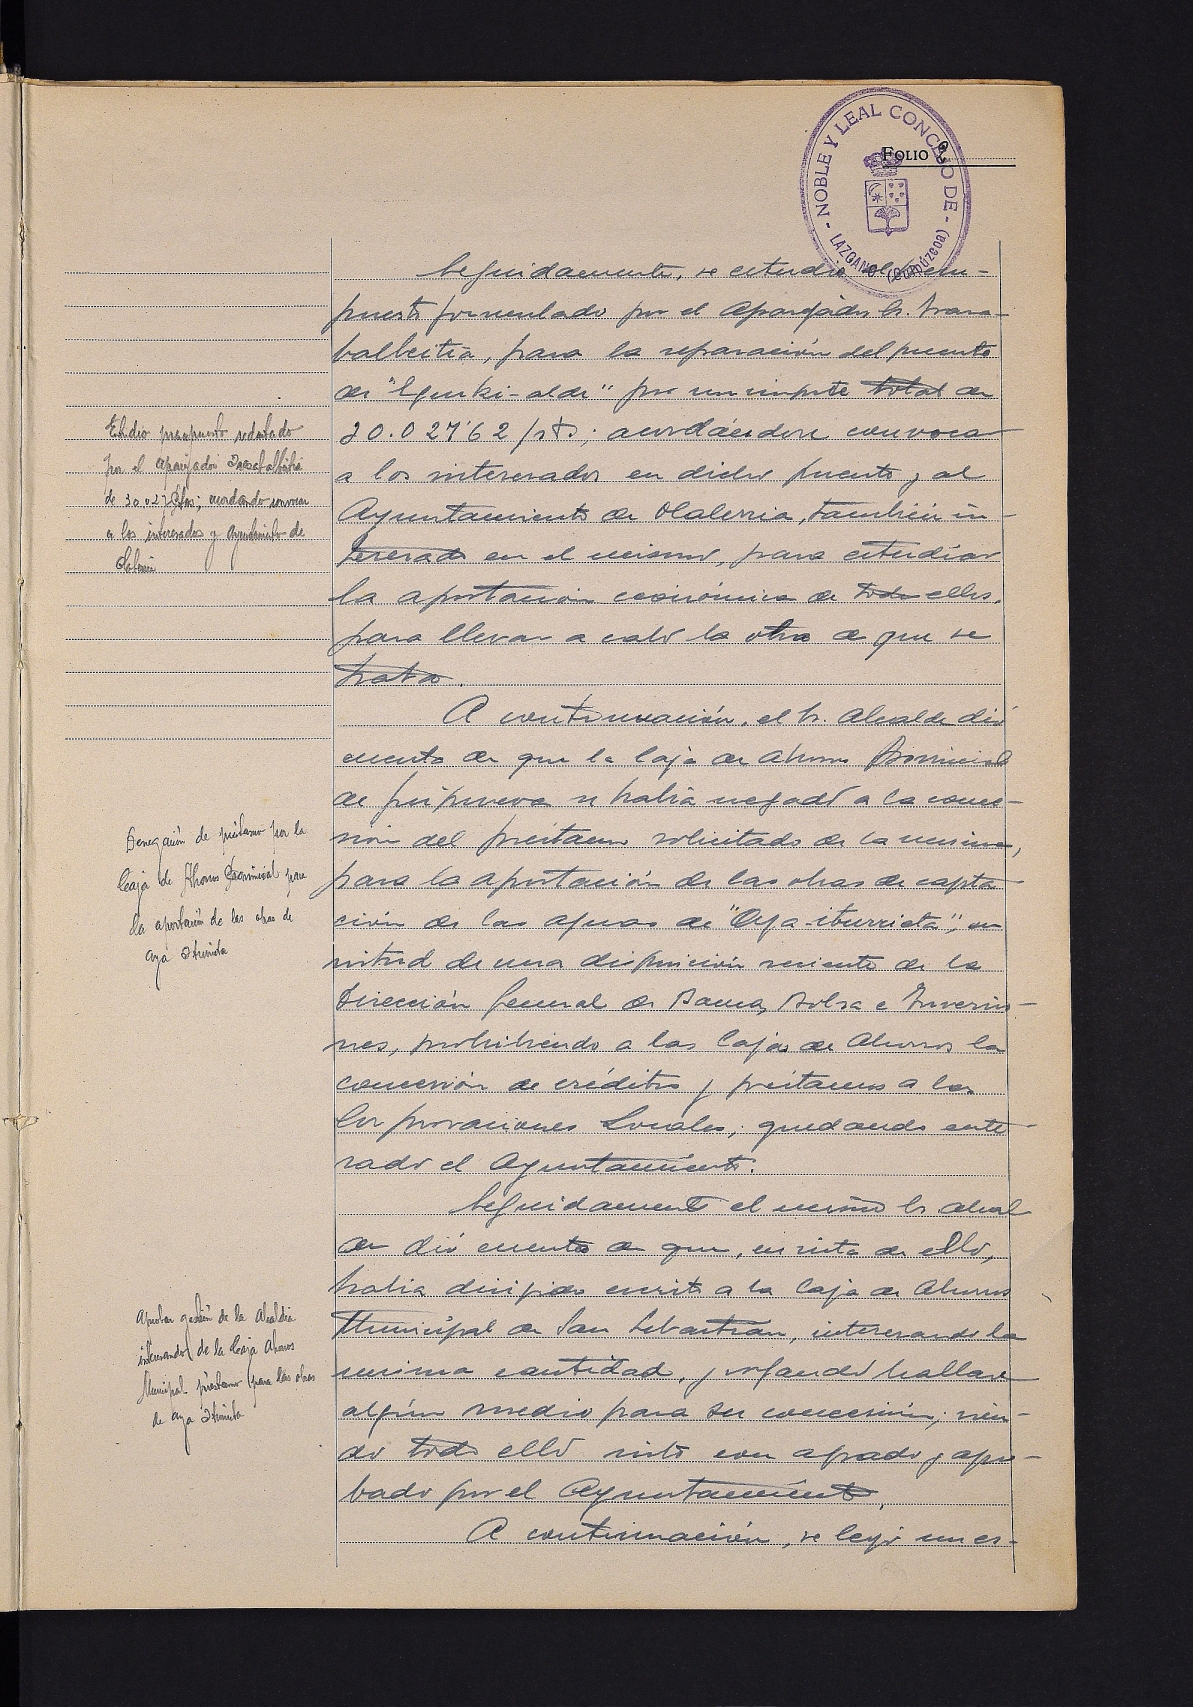 NOBLE Y LEAL CONCEJO DE
LAZCANO (Guipúzcoa)
FOLIO 9
Seguidamente, se estudió el presu-
puesto formulado por el Aparejador Sr. Irasa-
balbeitia, para la reparación del puente
de por un importe total de
30.027'62 pts; acordándose convocar
a los interesados en dicho puente y al
Ayuntamiento de Olaberria, también in-
teresado en el mismo, para estudiar
la aportación económica de todos ellos,
para llevar a cabo la obra de que se
trata.
Estudio presupuesto redactado
por el aparejador Irasabalbeitia
de 30.027 Ptas; acordando convocar
a los interesados y Ayuntamiento de
Olaberria
A continuación, el Sr. Alcalde dió
cuenta de que la Caja de Ahorros Provincial
de Guipúzcoa se había negado a la conce-
sión del préstamo solicitado de la misma,
para la aportación de las obras de capta
ción de las aguas de "Aya-iturrieta", en
virtud de una disposición reciente de la
Dirección General de Banca, Bolsa e Inversio-
nes, prohibiendo a las Cajas de Ahorros la
concesión de créditos y préstamos a las
Corporaciones Locales; quedando ente-
rado el Ayuntamiento.
Denegación de préstamo por la
Caja de Ahorros Provincial para
la aportación de las obras de
Aya Iturrieta
Seguidamente el mismo Sr. Alcal
de dió cuenta de que, en vista de ello,
había dirigido escrito a la Caja de Ahorros
Municipal de San Sebastián, interesando la
misma cantidad, y rogando hallase
algún medio para su concesión; sien-
do todo ello visto con agrado y apro-
bado por el Ayuntamiento.
Aprobar gestión de la Alcaldía
interesando de la Caja Ahorros
Municipal préstamo para las obras
de Aya Iturrieta
A continuación, se leyó un es-